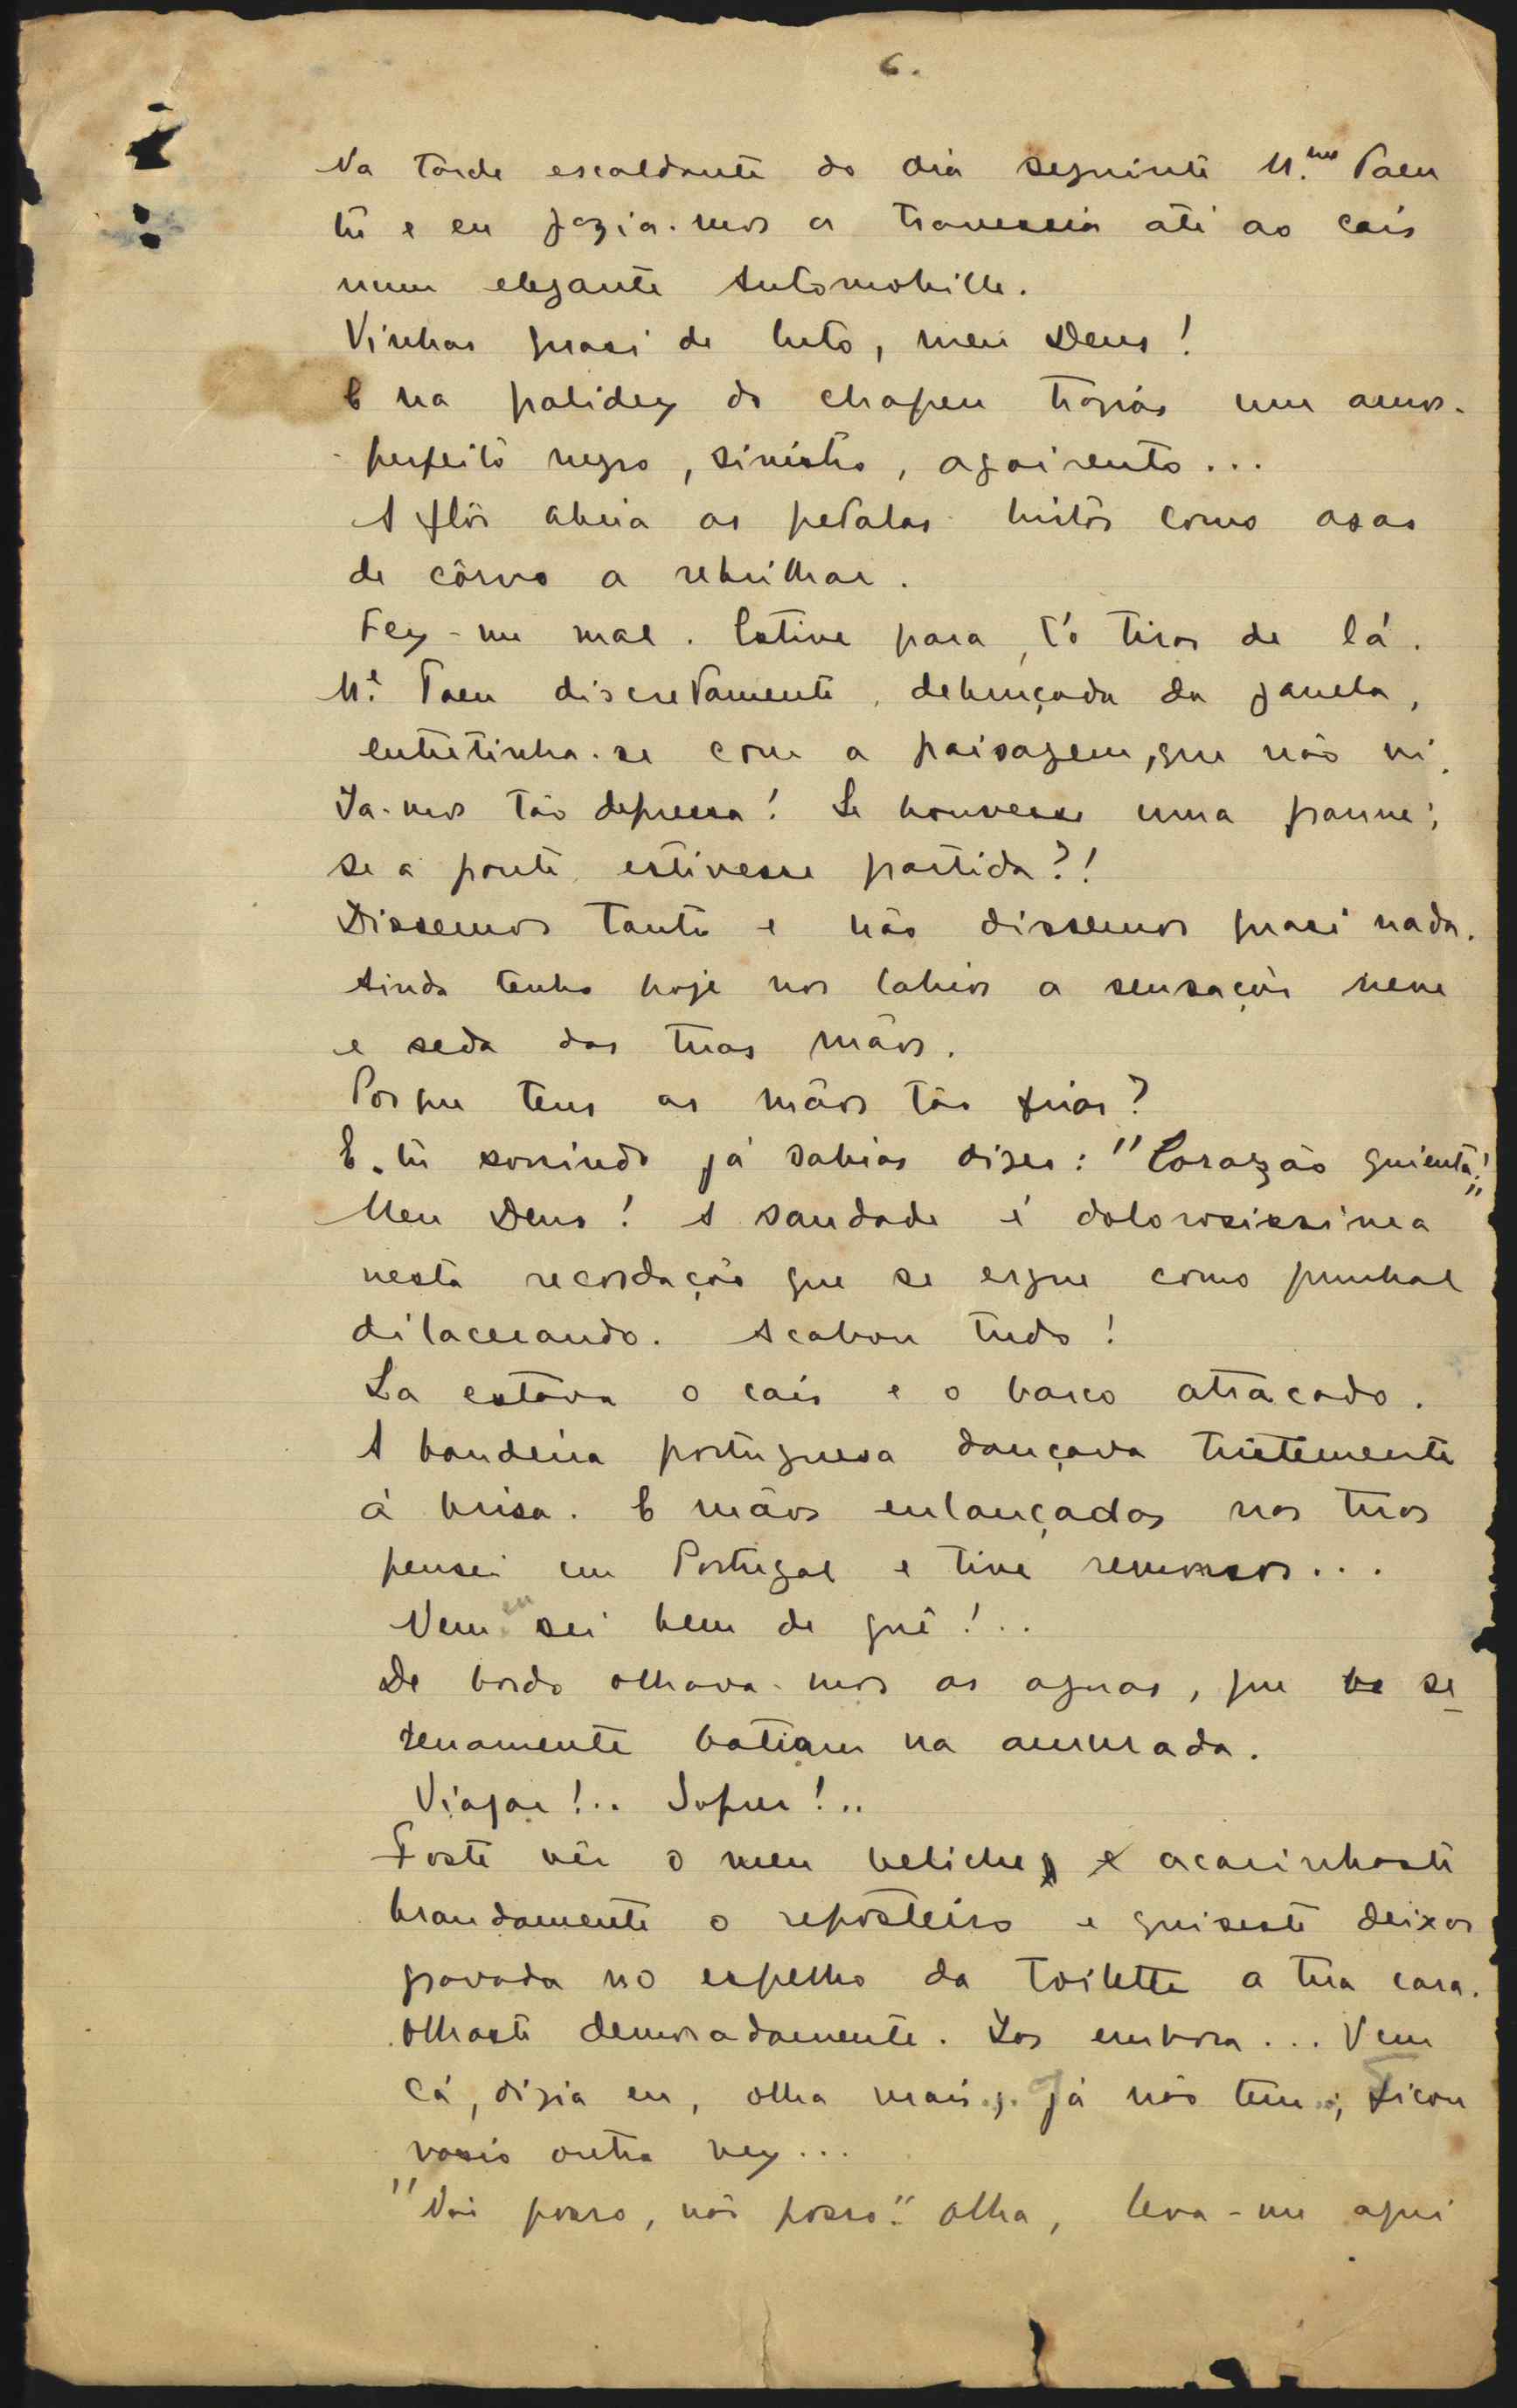 6.
Na tarde escaldante do dia seguinte M.me Paen
tu e eu fazia-mos a travessia até ao cais
num elegante Automobille.
Vinhas quasi de luto, meu Deus!
E na palidez do chapeu trazias um amor-
-perfeito negro, sinistro, agoirento...
A flôr abria as petalas hirtas como asas
de côrvo a rebrilhar.
Fez-me mal. Estive para t'o tirar de lá.
M.e Paen discretamente, debruçada da janela,
entretinha-se com a paisagem, que não vi.
Ia-mos tão depressa! Se houvesse uma panne;
se a ponte estivesse partida?!
Dissemos tanto e não dissemos quasi nada.
Ainda tenho hoje nos labios a sensação neve
e seda das tuas mãos.
Porque tens as mãos tão frias?
E tu sorrindo já sabias dizer: "Corazão quienta!"
Meu Deus! A saudade é dolorosissima
nesta recordação que se ergue como punhal
dilacerando. Acabou tudo!
La estava o cais e o barco atracado.
A bandeira portuguesa dançava tristemente
á brisa. E mãos enlançadas nas tuas
pensei em Portugal e tive remorsos...
Nem eu sei bem de quê!..
De bordo olhava-mos as aguas, que be se
renamente batiam na amurada.
Viajar!.. Sofrer!..
Foste vêr o meu beliche, e acarinhaste
brandamente o reposteiro e quiseste deixar
gravada no espelho da toilette a tua cara.
Olhaste demoradamente. Ias embora... Vem
cá, dizia eu, olha mais, já não tem; ficou
vasio outra vez...
"Não posso, não posso." Olha, leva-me aqui